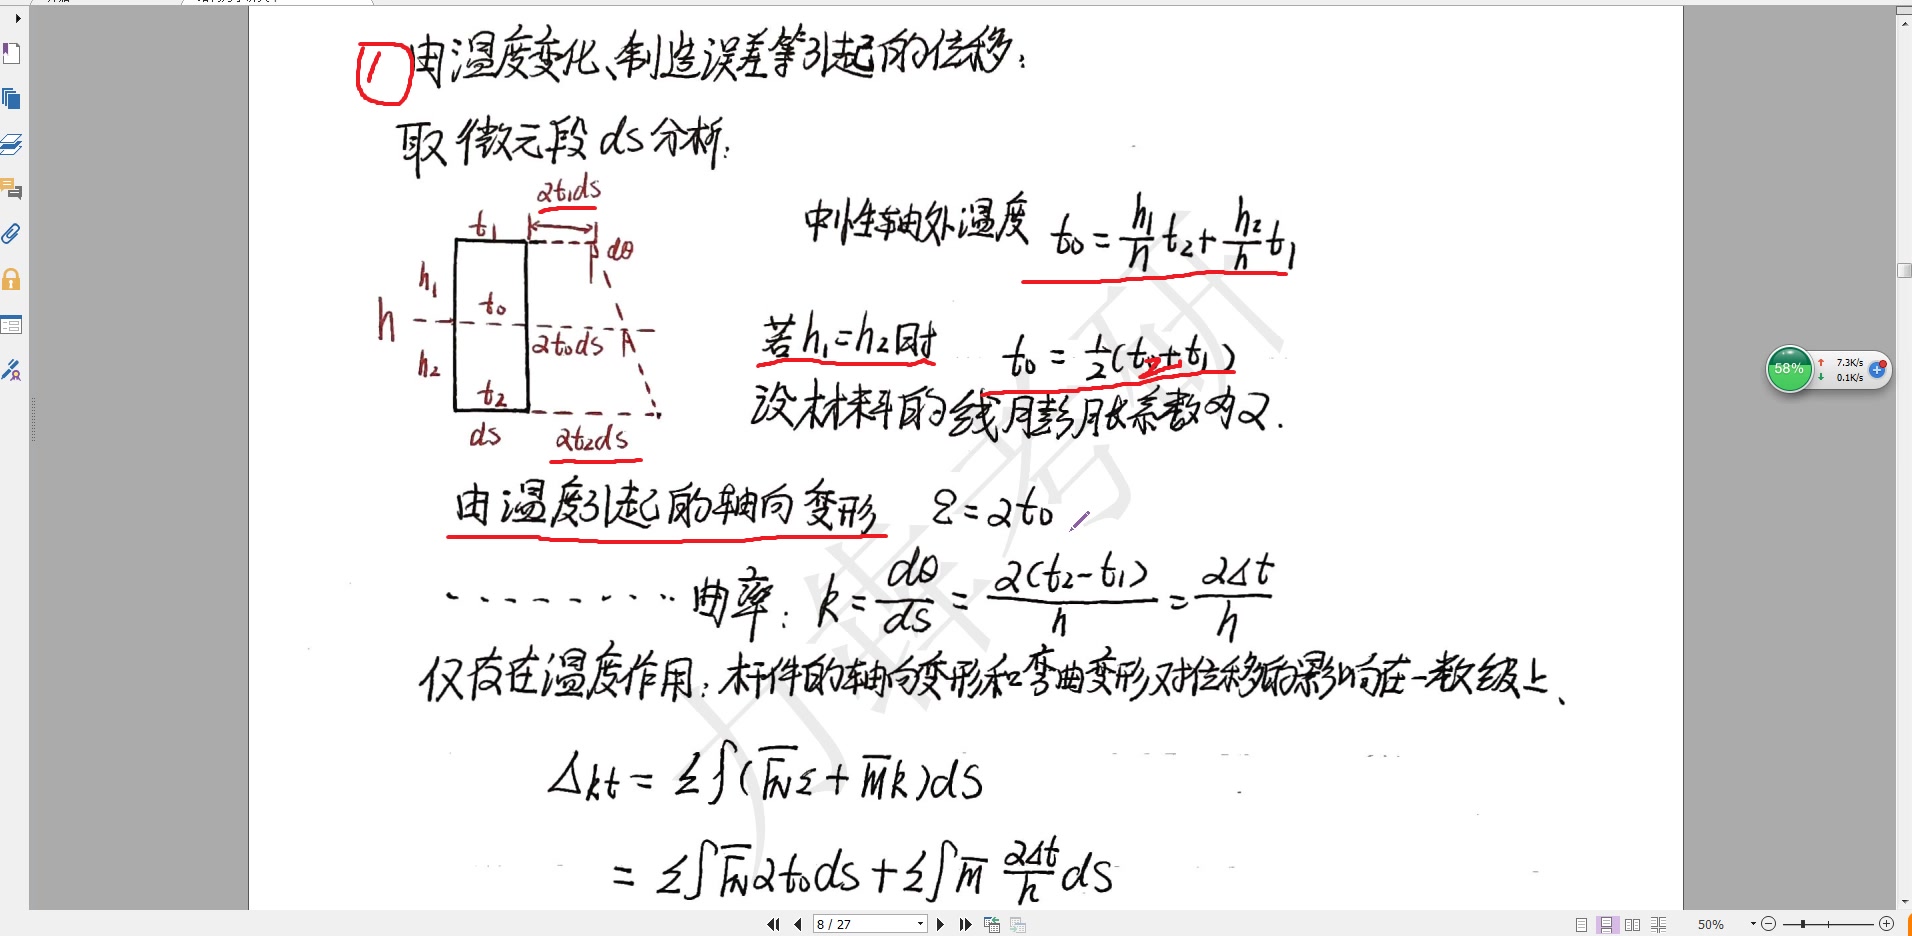 ① 由温度变化、制造误差等引起的位移:
取微元段ds分析:
αt₁ds
t₁
dθ
h₁
t₀
h
αt₀ds
h₂
t₂
ds
αt₂ds
中性轴处温度 t₀ = h₁/h t₂ + h₂/h t₁
若h₁=h₂时 t₀ = 1/2(t₂+t₁)
设材料的线膨胀系数为α.
由温度引起的轴向变形 ε=αt₀
......... 曲率: k = dθ/ds = α(t₂-t₁)/h = αΔt/h
仅存在温度作用: 杆件的轴向变形和弯曲变形对位移的影响在一数级上、
Δkt = Σ∫(F̅ɴε + M̅k)ds
= Σ∫F̅ɴαt₀ds + Σ∫M̅ αΔt/h ds
力犇考研
58%
7.3K/s
0.1K/s
8 / 27
50%